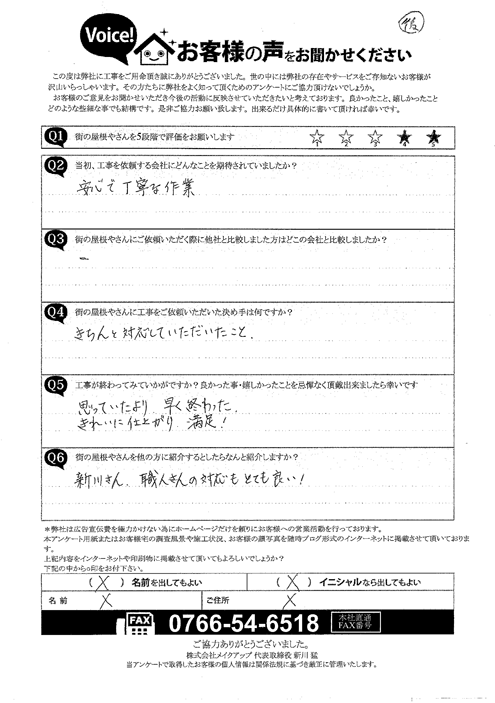 Voice!
お客様の声をお聞かせください
この度は弊社に工事をご用命頂き誠にありがとうございました。世の中には弊社の存在やサービスをご存知ないお客様が
沢山いらっしゃいます。その方たちに弊社をよく知って頂くためのアンケートにご協力頂けないでしょうか。
お客様のご意見をお聞かせいただき今後の活動に反映させていただきたいと考えております。良かったこと、嬉しかったこと
どのような些細な事でも結構です。是非ご協力お願い致します。出来るだけ具体的に書いて頂ければ幸いです。
Q1 街の屋根やさんを5段階で評価をお願いします ☆ ☆ ☆ ★ ★
Q2 当初、工事を依頼する会社にどんなことを期待されていましたか?
安心で丁寧な作業
Q3 街の屋根やさんにご依頼いただく際に他社と比較しました方はどこの会社と比較しましたか?
ー
Q4 街の屋根やさんに工事をご依頼いただいた決め手は何ですか?
きちんと対応していただいたこと.
Q5 工事が終わってみていかがですか?良かった事・嬉しかったことを忌憚なく頂戴出来ましたら幸いです
思っていたより 早く終わった.
きれいに仕上がり 満足!
Q6 街の屋根やさんを他の方に紹介するとしたらなんと紹介しますか?
新川さん、職人さんの対応も とても良い!
*弊社は広告宣伝費を極力かけない為にホームページだけを頼りにお客様への営業活動を行っております。
本アンケート用紙またはお客様宅の調査風景や施工状況、お客様の顔写真を随時ブログ形式のインターネットに掲載させて頂いておりま
す。
上記内容をインターネットや印刷物に掲載させて頂いてもよろしいでしょうか?
下記の中から○印をお付下さい。
( X ) 名前を出してもよい ( X ) イニシャルなら出してもよい
名 前 X ご住所 X
FAX 0766-54-6518 本社直通 FAX番号
ご協力ありがとうございました。
株式会社メイクアップ 代表取締役 新川 猛
当アンケートで取得したお客様の個人情報は関係法規に基づき厳正に管理いたします。